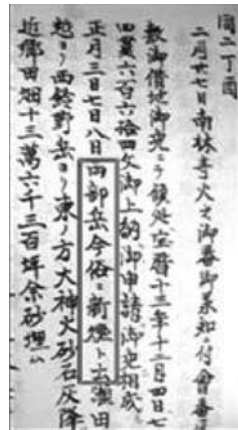 同二丁酉
二月廿七日南林寺火之御番御承知之付會番
敷御借地御免ニテ候処宝暦十三年十二月四日七
四貫六百六拾四文御上納御申請御免相成
正月三日七日八日両部岳今俗ニ新煙ト云
ヨリ西鈴野岳ヨリ東ノ方大神火砂石灰降
近郷田畑十三萬六千三百坪余砂埋ム